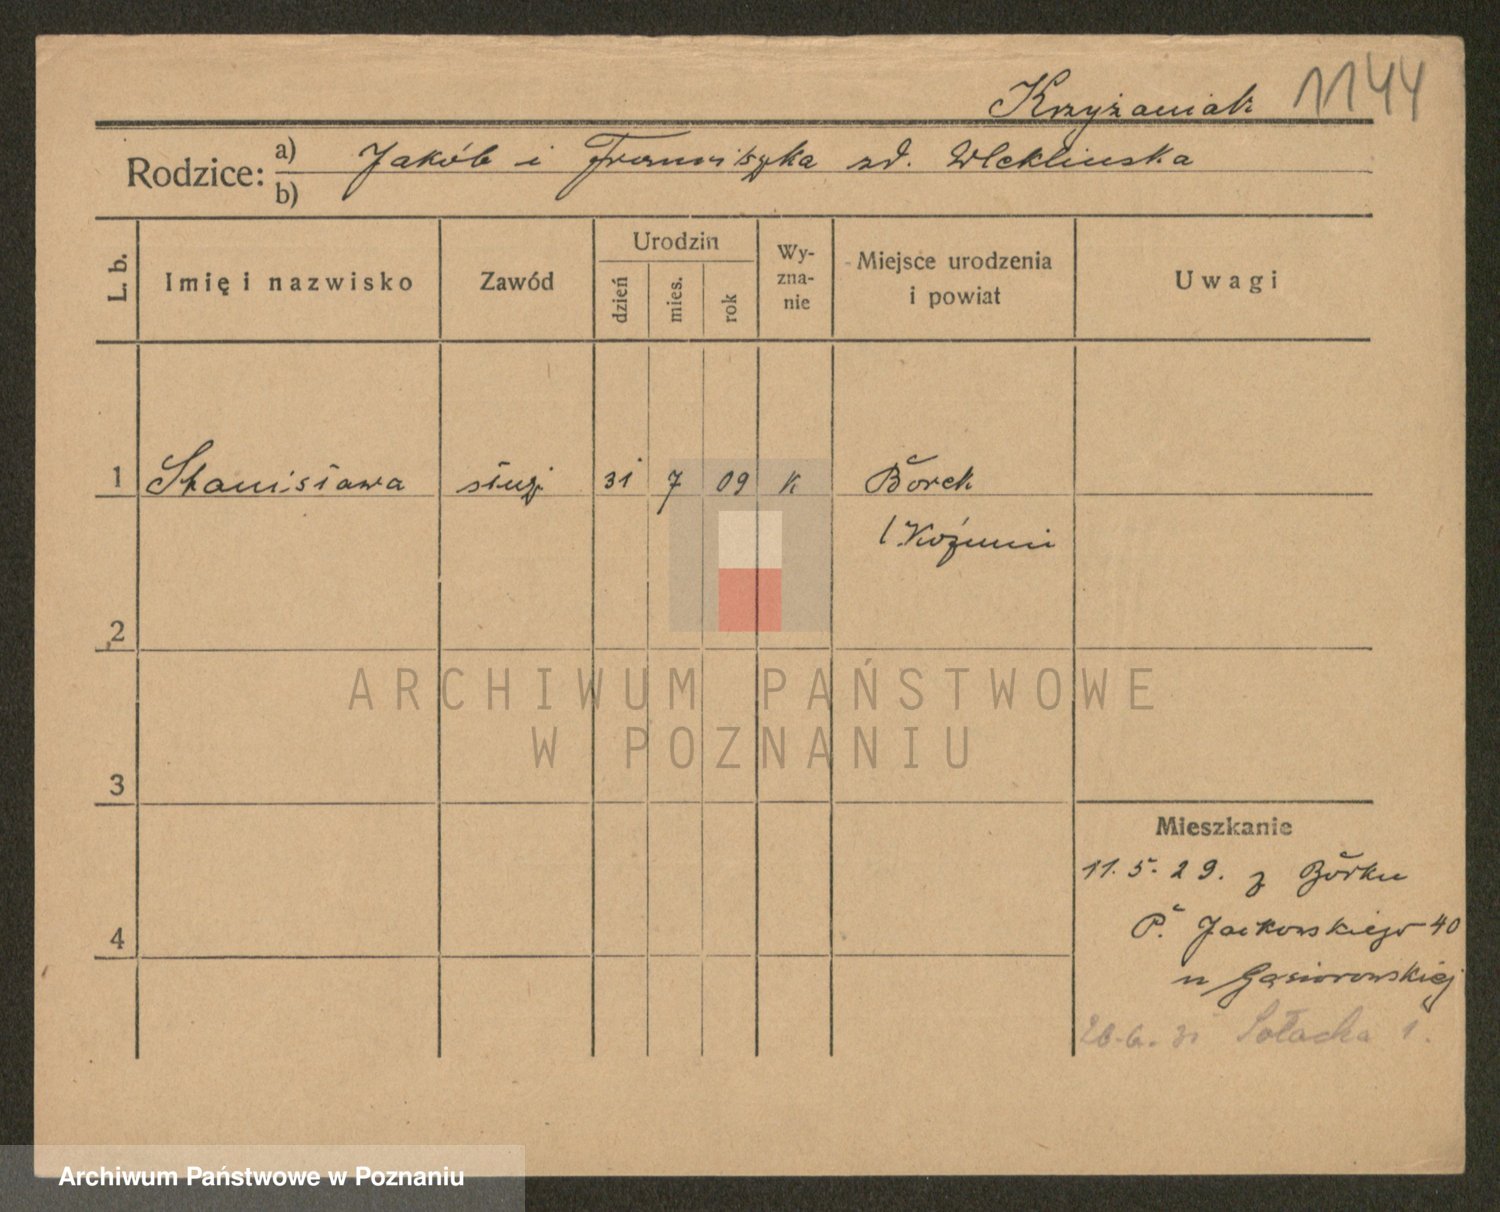 Krzyżaniak 1144
Rodzice: a) Jakób i Franciszka zd.
b)
L. b. Imię i nazwisko Zawód Urodzin Wy-zna-nie Miejsce urodzenia i powiat Uwagi
dzień mies. rok
1 Stanisława służ. 31 7 09 K Borek
/Koźmin
2
ARCHIWUM PAŃSTWOWE
W POZNANIU
3
Mieszkanie
11.5.29. z Borku
4 P. Jackowskiego 40
u Gąsiorowskiej
26.6.31 Sołacka 1.
Archiwum Państwowe w Poznaniu